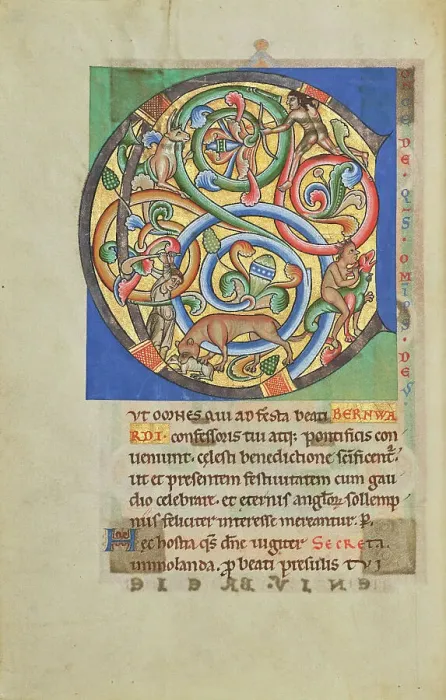 C
ONCE DE · Q̄S · OMP̄S · DEVS
VT OMNES QUI AD festa beati BERNWA
RDI · confessoris tui atq; pontificis con
ueniunt · celesti benedictione sc̄ificent᷑ ·
ut et presentem festiuitatem cum gau
dio celebrare · et eternis angl̄oꝝ sollemp
niis feliciter interesse mereantur · P.
Hec hostia q̄s dn̄e iugiter Secreta.
immolanda. ꝓ beati presulis TVI